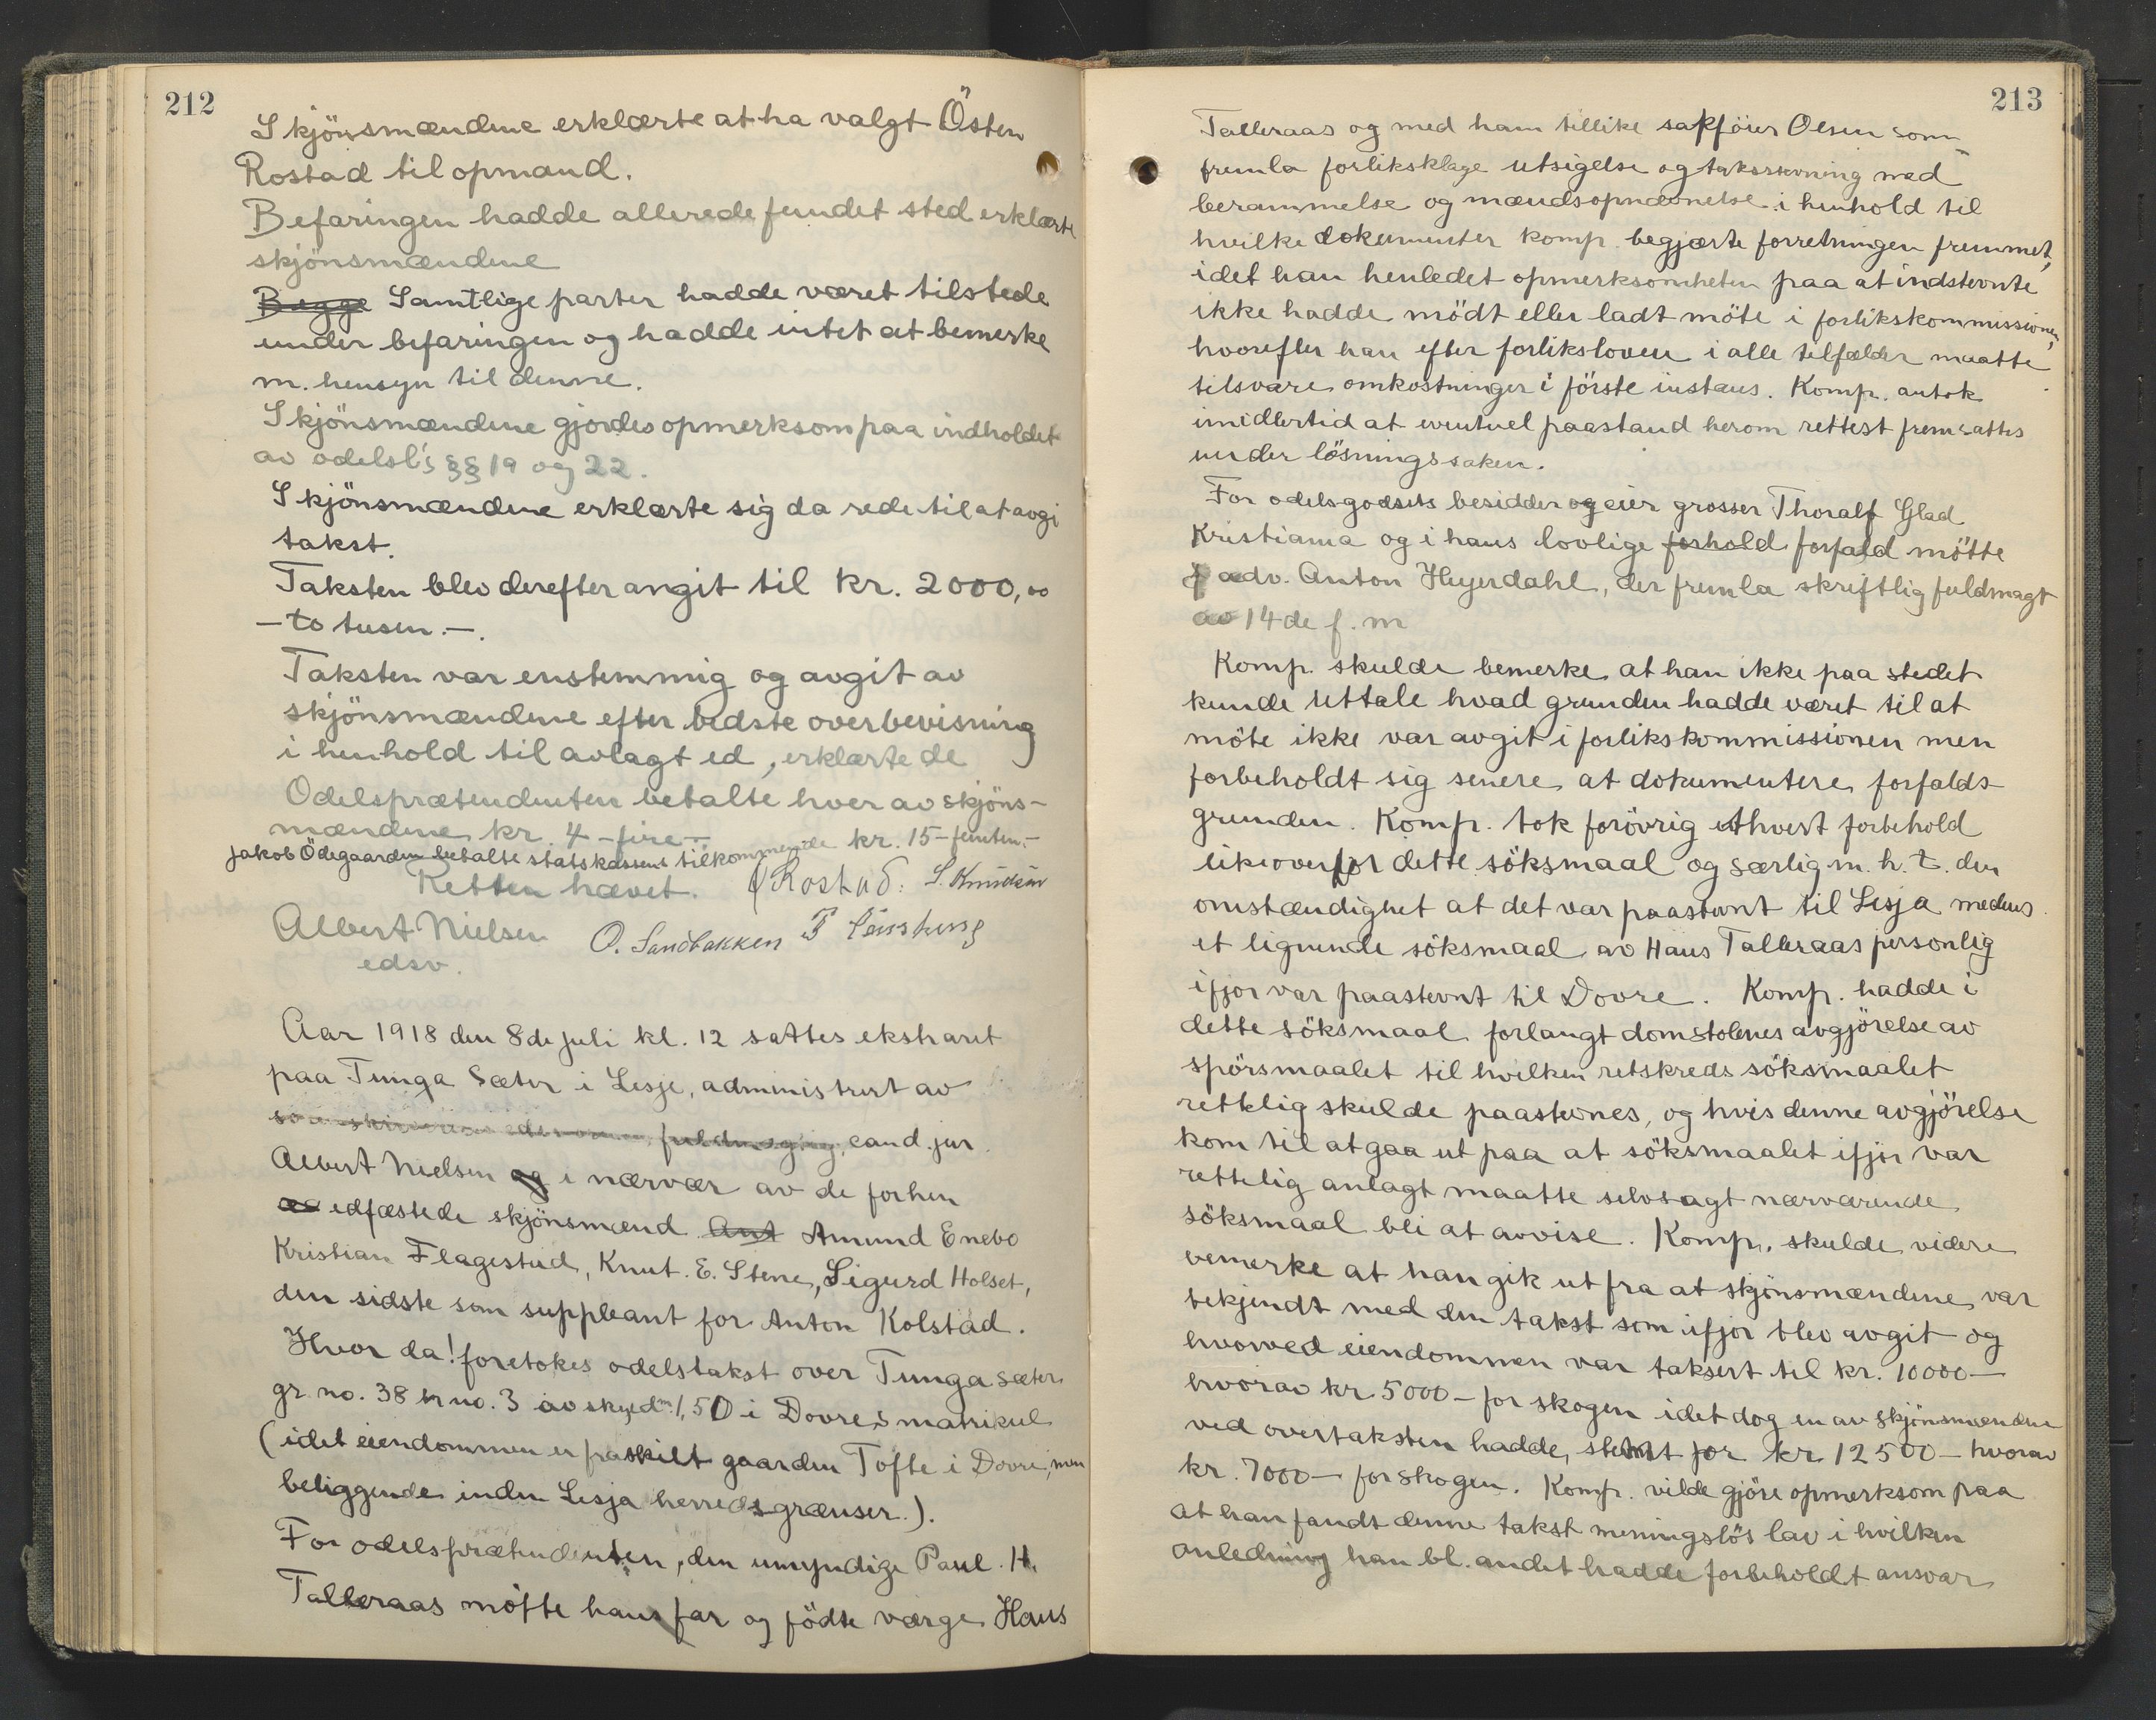 212
Skjönsmændene erklærte at ha valgt Östen
Rostad til opmand.
Befaringen hadde allerede fundet sted erklærte
skjönsmændene
Begge Samtlige parter hadde været tilstede
under befaringen og hadde intet at bemerke
m. hensyn til denne.
Skjönsmændene gjordes opmerksom paa indholdet
av odelsl's §§ 19 og 22.
Skjönsmændene erklærte sig da rede til at avgi
takst.
Taksten blev derefter angit til kr. 2000,00
- to tusen. -.
Taksten var enstemmig og avgit av
skjönsmændene efter bedste overbevisning
i henhold til avlagt ed, erklærte de
Odelsprætendenten betalte hver av skjöns-
mændene kr. 4 - fire -
Jakob Ödegaarden betalte statskassens tilkommende kr. 15 - femten. -
Retten hævet. Ö Rostad. S. Knudsen
Albert Nielsen O. Sandbakken
edsv.
Aar 1918 den 8de juli kl. 12 sattes ekstraret
paa Tunga Sæter i Lesje, administrert av
sorenskriverens edsvorne fuldmægtig, cand. jur.
Albert Nielsen og i nærvær av de forhen
edfæstede skjönsmænd Ant Amund Enebo
Kristian Flagestad, Knut. E. Stene, Sigurd Holset,
den sidste som suppleant for Anton Kolstad.
Hvor da! foretokes odelstakst over Tunga sæter
gr. no. 38 br no. 3 av skyld m. 1,50 i Dovres matrikul
(idet eiendommen er fraskilt gaarden Tofte i Dovre, men
beliggende inden Lesja herredsgrænser.).
For odelsprætendenten, den umyndige Paul. H.
Talleraas mötte hans far og födte værge Hans
213
Talleraas og med ham tillike sakförer Olsen som
fremla forliksklage utsigelse og taksrekvning med
berammelse og mændsopnævnelse i henhold til
hvilke dokumenter komp. begjærte forretningen fremmet,
idet han henledet opmerksomheten paa at indstevnte
ikke hadde mödt eller ladt möte i forlikskommissionen,
hvorefter han efter forliksloven i alle tilfælder maatte
tilsvare omkostninger i förste instans. Komp. antok
imidlertid at eventuel paastand herom rettest fremsattes
under lösningssaken.
For odelsgodsets besidder og eier grosser Thoralf Glad
Kristiania og i hans lovlige forhold forfald mötte
adv. Anton Heyerdahl, der fremla skriftlig fuldmagt
av 14de f. m
Komp. skulde bemerke at han ikke paa stedet
kunde uttale hvad grunden hadde været til at
möte ikke var avgit i forlikskommissionen men
forbeholdt sig senere at dokumentere forfalds-
grunden. Komp. tok forövrig ethvert forbehold
likeoverfor dette söksmaal og særlig m. h. t. den
omstændighet at det var paastevnt til Lesja medens
et lignende söksmaal av Hans Talleraas personlig
ifjor var paastevnt til Dovre. Komp. hadde i
dette söksmaal forlangt domstolenes avgjörelse av
spörsmaalet til hvilken retskreds söksmaalet
rettelig skulde paastevnes, og hvis denne avgjörelse
kom til at gaa ut paa at söksmaalet ifjor var
rettelig anlagt maatte selvsagt nærværende
söksmaal bli at avvise. Komp. skulde videre
bemerke at han gik ut fra at skjönsmændene var
bekjendt med den takst som ifjor blev avgit og
hvorved eiendommen var taksert til kr. 10000 -
hvorav kr 5000 - for skogen idet dog en av skjönsmændene
ved overtaksten hadde stemt for kr 12500 - hvorav
kr. 7000 - for skogen. Komp. vilde gjöre opmerksom paa
at han fandt denne takst meningslös lav i hvilken
anledning han bl. andet hadde forbeholdt ansvar